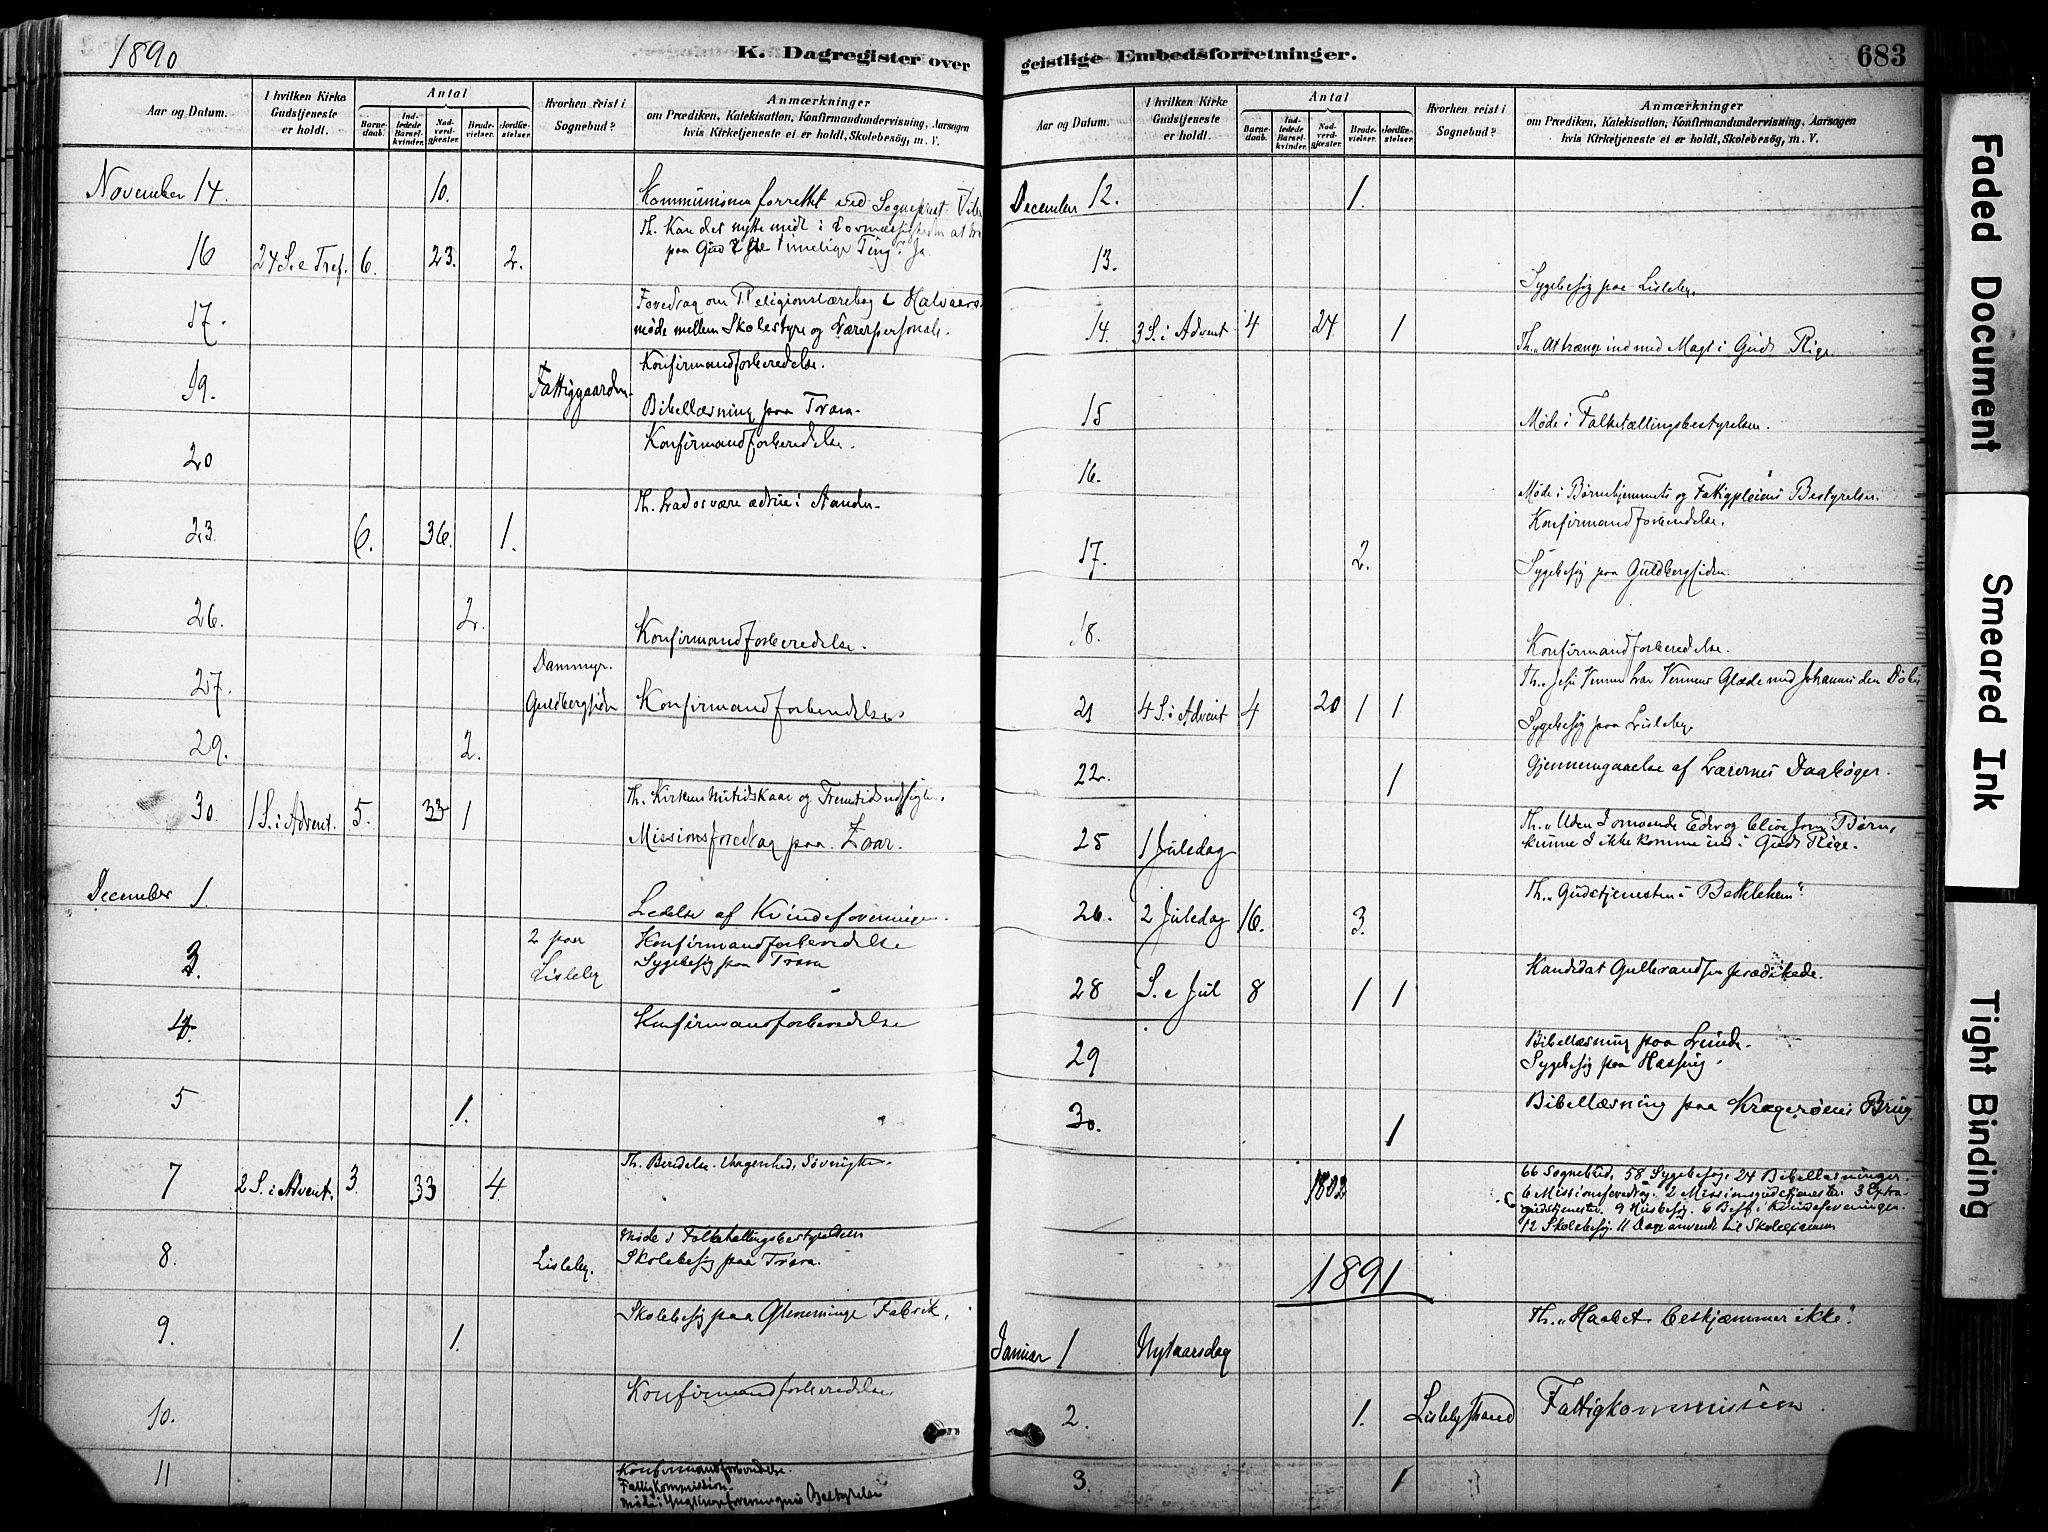 1890
K. Dagregister over
Aar og Datum.
I hvilken Kirke Gudstjeneste er holdt.
Antal
Barnedaab.
Indledede Barselkvinder.
Nadverdgjæster.
Brudevielser.
Jordfæstelser.
Hvorhen reist i Sognebud?
Anmærkninger
om Prædiken, Katekisation, Konfirmandundervisning, Aarsagen
hvis Kirketjeneste ei er holdt, Skolebesög, m. V.
November 14. 10. Kommunionen forrettet ved Sogneprest
16 24 S. e Tref. 6. 23. 2. Th. Kan det nytte midt i at tro
paa Gud timelige Ting? Ja
17. Foredrag om Religionslærebog i
møde mellem Skolestyre og Lærerpersonale.
19. Fattiggaarden. Konfirmandforberedelse.
Bibellæsning paa Trara.
20 Konfirmandforberedelse.
23. 6. 36. 1. Th. Lad os være ædrue i Aanden.
26. 2. Konfirmandforberedelse.
27. Dammyr.
Guldbergsiden Konfirmandforberedelse
29. 2.
30. 1 S. i Advent. 5. 33 1 Th. Kirkens Nutidskaar og Fremtidsudsigter.
Missionsforedrag paa Zoar.
December 1. Ledelse af Kvindeforeningen.
3. 2 paa Lisleby Konfirmandforberedelse
Sygebesøg paa Trara
4. Konfirmandforberedelse
5 1.
7 2 S. i Advent. 3. 33 4. Th. Beredelse. Vaagenhed,
8. Lisleby. Møde i Folketællingsbestyrelsen
Skolebesøg paa Trara.
9. 1. Skolebesøg paa Glemminge Fabrik.
10. Konfirmandforberedelse
11 Konfirmandforberedelse.
Fattigkommission.
Møde i Ynglingeforeningens Bestyrelse
geistlige Embedsforretninger.
683
Aar og Datum.
I hvilken Kirke Gudstjeneste er holdt.
Antal
Barnedaab.
Indledede Barselkvinder.
Nadverdgjæster.
Brudevielser.
Jordfæstelser.
Hvorhen reist i Sognebud?
Anmærkninger
om Prædiken, Katekisation, Konfirmandundervisning, Aarsagen
hvis Kirketjeneste ei er holdt, Skolebesög, m. V.
December 12. 1.
13. Sygebesøg paa Lisleby.
14. 3 S. i Advent 4 24 1 Th. "At trænge ind med Magt i Guds Rige.
15 Møde i Folketællingsbestyrelsen.
16. Møde i Børnehjemmets og Fattigpleiens Bestyrelse.
17. 2. Konfirmandforberedelse.
Sygebesøg paa Guldbergsiden.
18. Konfirmandforberedelse.
21 4 S. i Advent 4 20 1 1 Th. "Jesu Venner har Vennens Glæde med Johannes den Døber
Sygebesøg paa Lisleby.
22. 1 Gjennemgaaelse af Lærernes Dagbøger.
25 1 Juledag Th. "Uden I omvende Eder og blive som Børn,
kunne I ikke komme ind i Guds Rige.
26. 2 Juledag 16. 3. Th. "Gudstjenesten i Bethlehem".
28 S. e Jul 8 1 1 Kandidat Gulbrandsen prædikede.
29 Bibellæsning paa Lunde.
Sygebesøg paa Hassing.
30. 1 Bibellæsning paa Kragerøens Brug
1802 66 Sognebud, 58 Sygebesøg. 24 Bibellæsninger.
6 Missionsforedrag. 2 Missionsgudstjenester. 3 Extra
gudstjenester. 9 Husbesøg. 6 Besøg i Kvindeforeningen.
12 Skolebesøg. 11 Dage anvendt til Skoleexamen
1891
Januar 1 Nytaarsdag Th. "Haabet beskjæmmer ikke".
2. 1. Lislebystrand Fattigkommission.
3. 1
Faded Document
Smeared Ink
Tight Binding